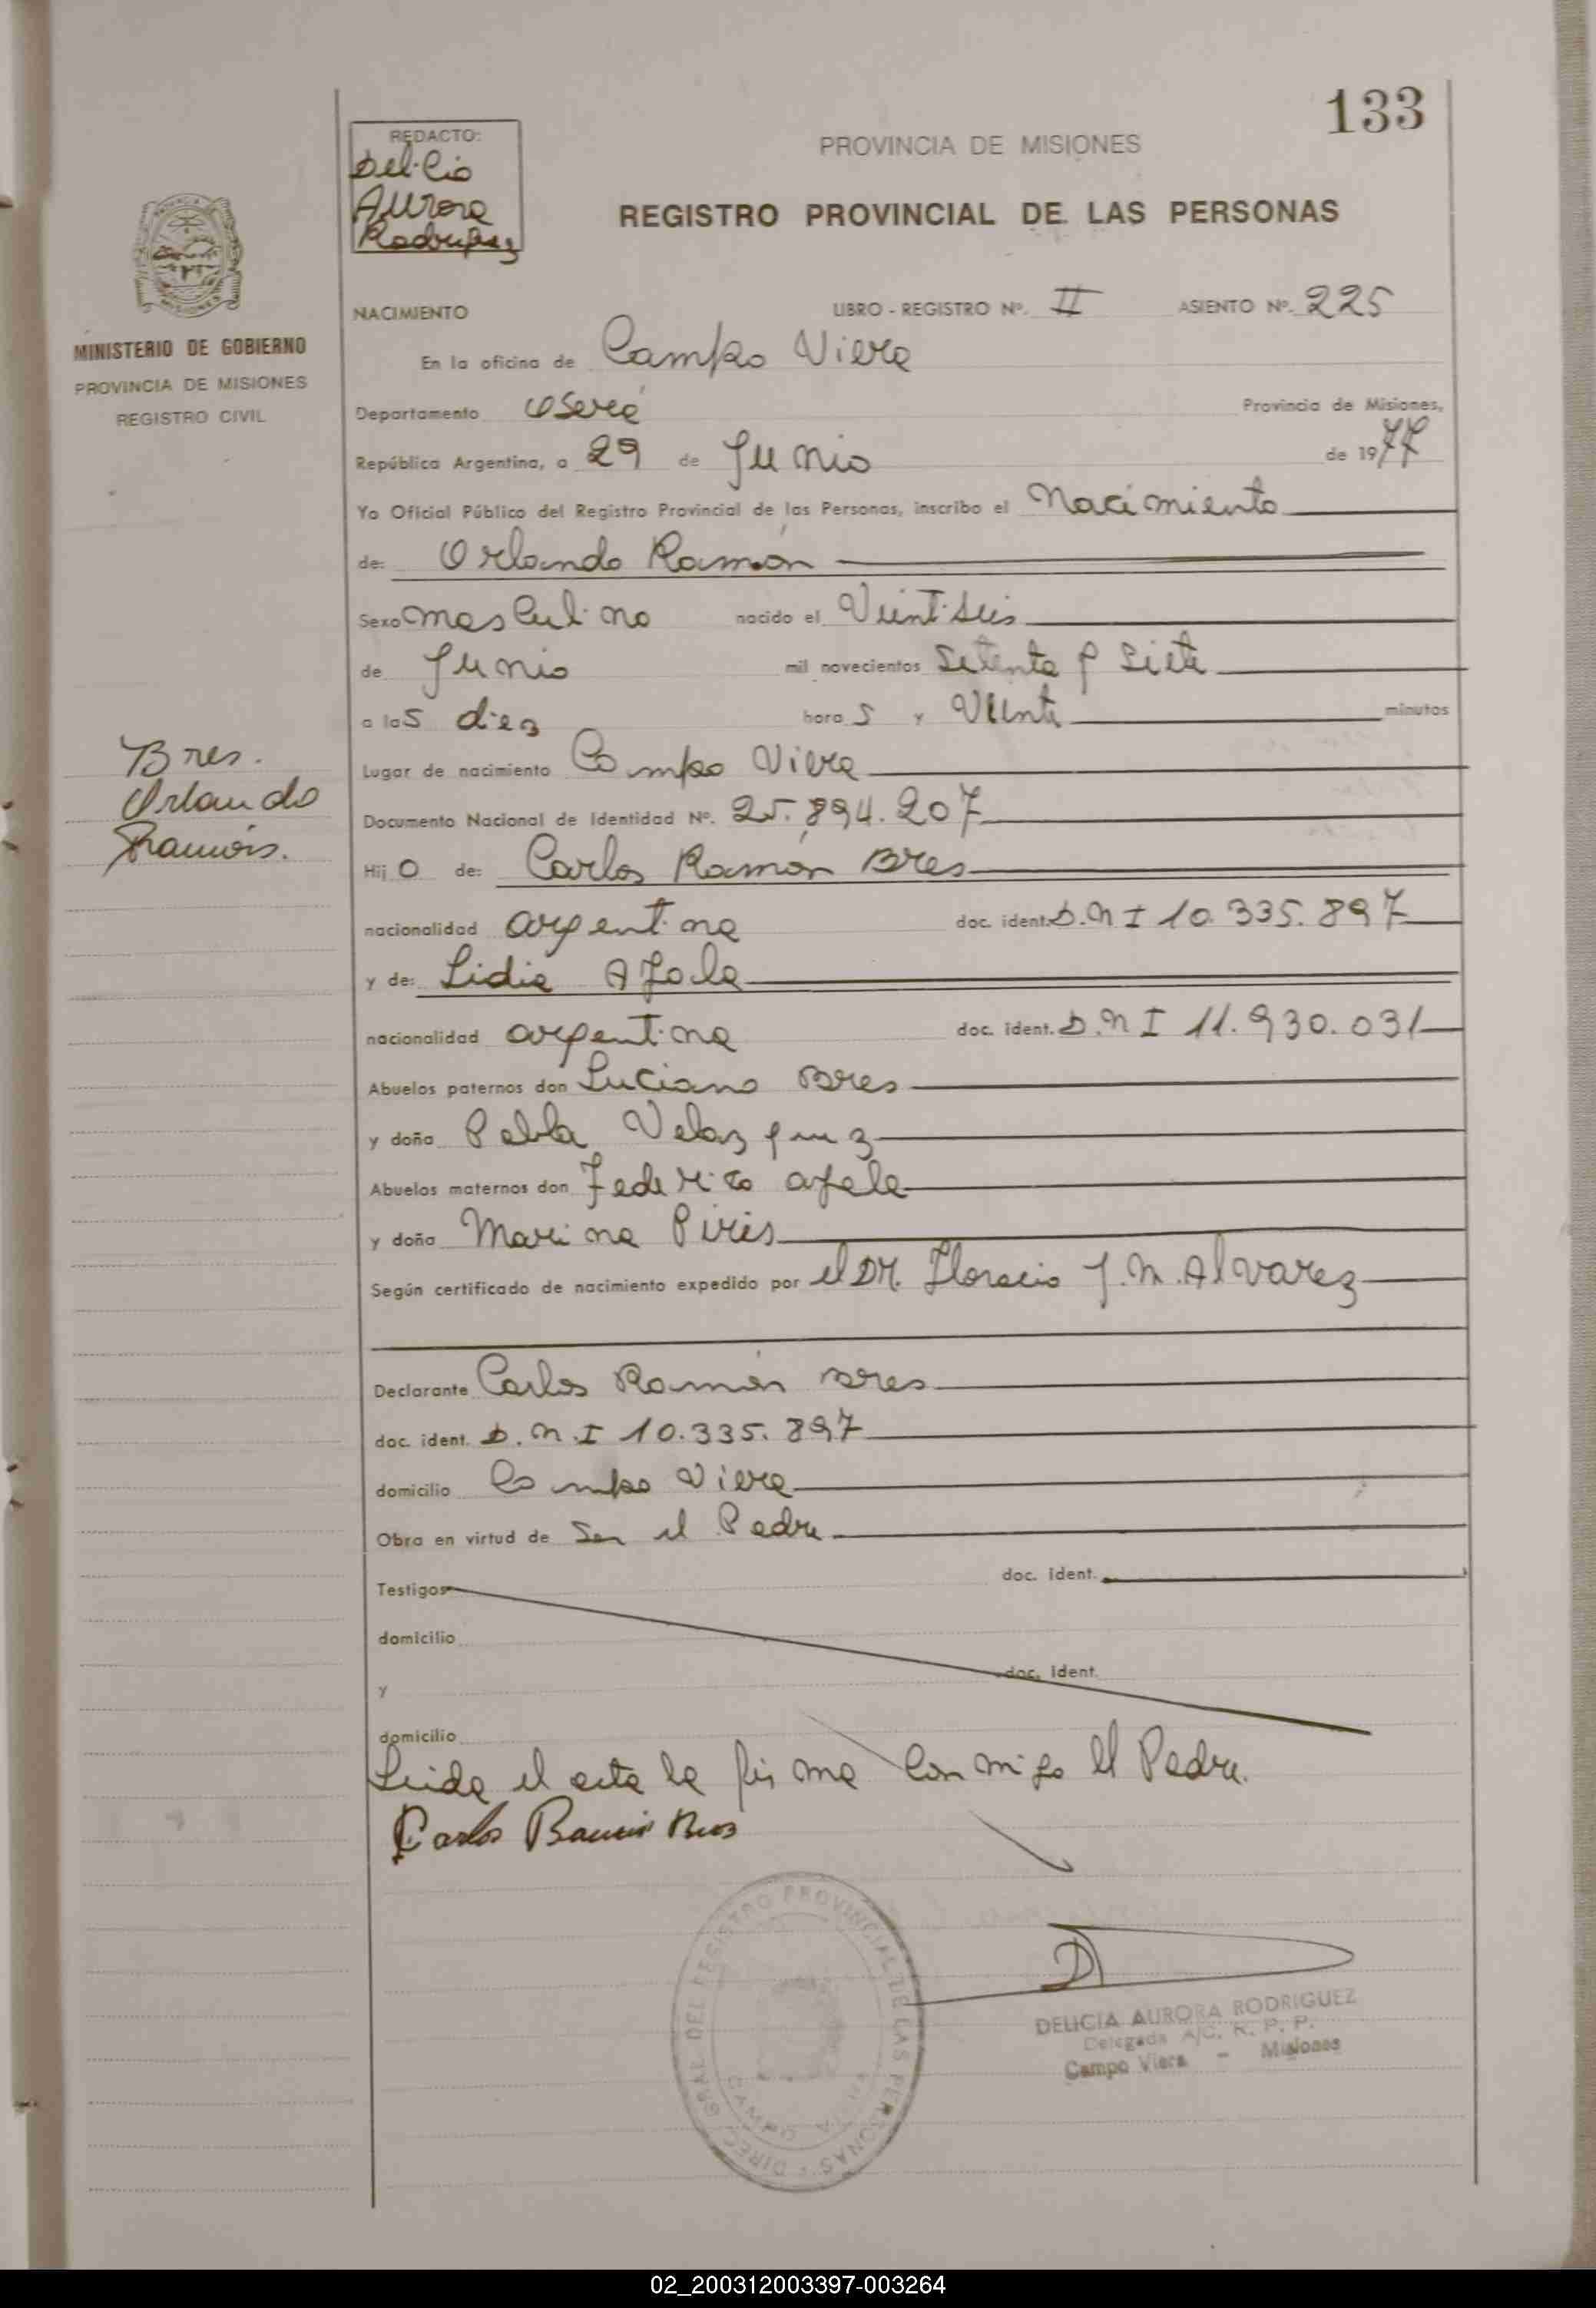 133
REDACTO:
Delicia
Aurora
Rodriguez
PROVINCIA DE MISIONES
REGISTRO PROVINCIAL DE LAS PERSONAS
MINISTERIO DE GOBIERNO
PROVINCIA DE MISIONES
REGISTRO CIVIL
NACIMIENTO LIBRO - REGISTRO Nº. II ASIENTO Nº. 225
En la oficina de Campo Viera
Departamento Oberá Provincia de Misiones,
República Argentina, a 29 de Junio de 1977
Yo Oficial Público del Registro Provincial de las Personas, inscribo el Nacimiento
de: Orlando Ramón
Sexo Masculino nacido el Veintiseis
de Junio mil novecientos Setenta y Siete
a las diez horas y Veinte minutos
Lugar de nacimiento Campo Viera
Documento Nacional de Identidad Nº. 25.894.207
Bres.
Orlando
Ramón.
Hijo de: Carlos Ramón Bres
nacionalidad argentina doc. ident. D.N I 10.335.897
y de: Lidia Ayala
nacionalidad argentina doc. ident. D.N I 11.930.031
Abuelos paternos don Luciano Bres
y doña Pabla Velazquez
Abuelos maternos don Federico ayala
y doña Marina Piris
Según certificado de nacimiento expedido por el DR. Horacio J. M. Alvarez
Declarante Carlos Ramón Bres
doc. ident. D.N.I 10.335.897
domicilio Campo Viera
Obra en virtud de Ser el Padre
Testigos doc. ident.
domicilio
y doc. ident.
domicilio
Leida el acta la firma conmigo el Padre.
Carlos Ramón Bres
DIREC. GRAL. DEL REGISTRO PROVINCIAL DE LAS PERSONAS
CAMPO VIERA
DELICIA AURORA RODRIGUEZ
Delegada A/C. R. P. P.
Campo Viera - Misiones
02_200312003397-003264